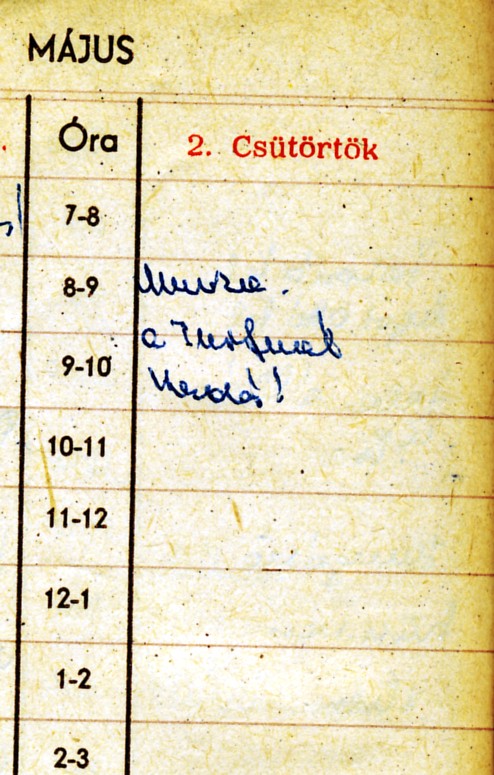 MÁJUS
Óra
2. Csütörtök
7-8
8-9
a
9-10
10-11
11-12
12-1
1-2
2-3